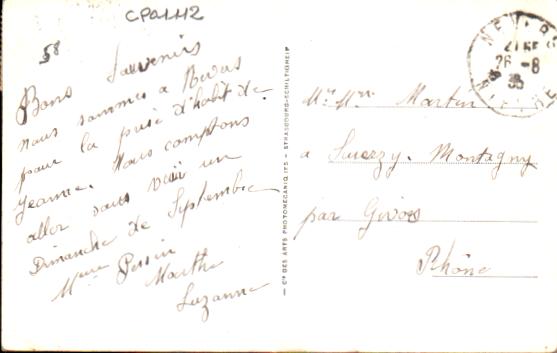 CPA1112
58
Bons Souvenirs
nous sommes a Nevers
pour la prise d'habit de
Jeanne. Nous comptons
aller vous voir un
Dimanche de Septembre
Mme Perrin
Marthe
Suzanne
Cie DES ARTS PHOTOMECANIQUES - STRASBOURG-SCHILTIGHEIM
NEVERS
26 -8
35
NIEVRE
Mr Mme Martin
a Montagny
par Givors
Rhône